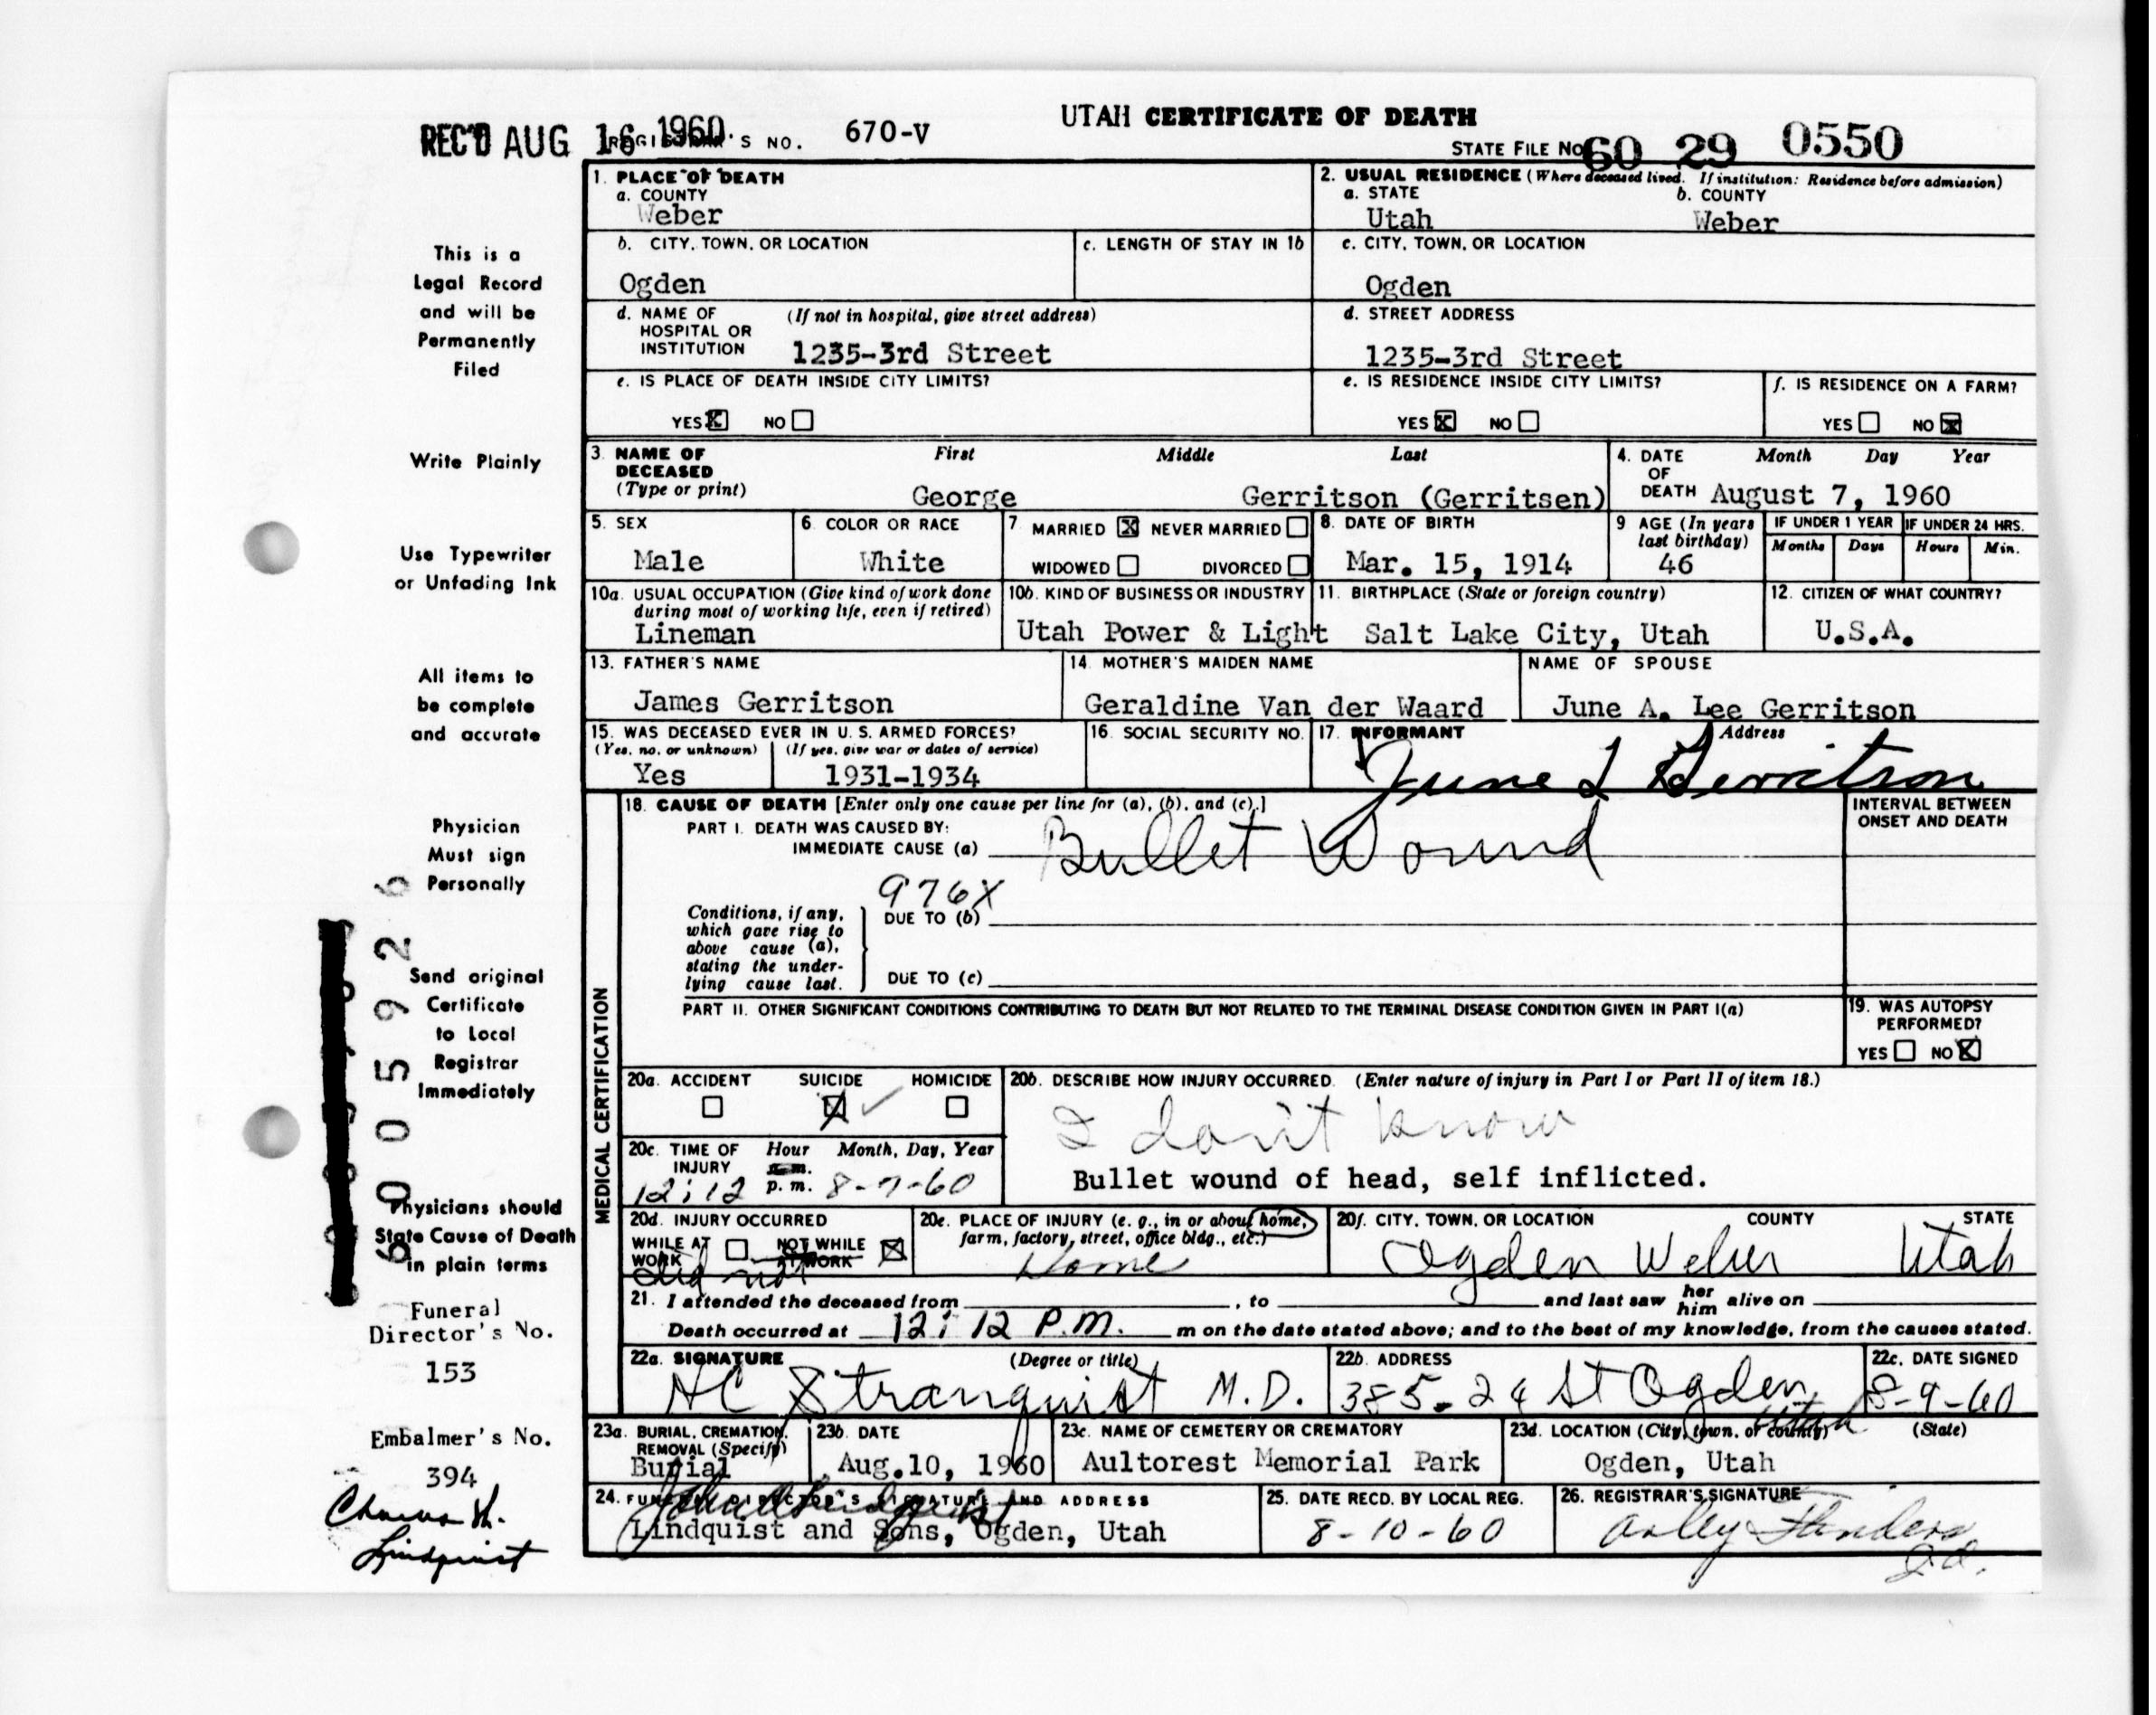 UTAH CERTIFICATE OF DEATH
REC'D AUG 16 1960
REGISTRAR'S NO. 670-V
STATE FILE NO. 60 29 0550
This is a
Legal Record
and will be
Permanently
Filed
Write Plainly
Use Typewriter
or Unfading Ink
All items to
be complete
and accurate
Physician
Must sign
Personally
Send original
Certificate
to Local
Registrar
Immediately
Physicians should
State Cause of Death
in plain terms
Funeral
Director's No.
153
Embalmer's No.
394
Lindquist
1. PLACE OF DEATH
a. COUNTY
Weber
2. USUAL RESIDENCE (Where deceased lived. If institution: Residence before admission)
a. STATE b. COUNTY
Utah Weber
b. CITY, TOWN, OR LOCATION
Ogden
c. LENGTH OF STAY IN 1b
c. CITY, TOWN, OR LOCATION
Ogden
d. NAME OF (If not in hospital, give street address)
HOSPITAL OR
INSTITUTION 1235-3rd Street
d. STREET ADDRESS
1235-3rd Street
e. IS PLACE OF DEATH INSIDE CITY LIMITS?
YES X NO
e. IS RESIDENCE INSIDE CITY LIMITS?
YES X NO
f. IS RESIDENCE ON A FARM?
YES NO X
3. NAME OF First Middle Last
DECEASED
(Type or print) George Gerritson (Gerritsen)
4. DATE Month Day Year
OF
DEATH August 7, 1960
5. SEX
Male
6. COLOR OR RACE
White
7. MARRIED X NEVER MARRIED
WIDOWED DIVORCED
8. DATE OF BIRTH
Mar. 15, 1914
9. AGE (In years
last birthday)
46
IF UNDER 1 YEAR IF UNDER 24 HRS.
Months Days Hours Min.
10a. USUAL OCCUPATION (Give kind of work done
during most of working life, even if retired)
Lineman
10b. KIND OF BUSINESS OR INDUSTRY
Utah Power & Light
11. BIRTHPLACE (State or foreign country)
Salt Lake City, Utah
12. CITIZEN OF WHAT COUNTRY?
U.S.A.
13. FATHER'S NAME
James Gerritson
14. MOTHER'S MAIDEN NAME
Geraldine Van der Waard
NAME OF SPOUSE
June A. Lee Gerritson
15. WAS DECEASED EVER IN U. S. ARMED FORCES?
(Yes, no, or unknown) (If yes, give war or dates of service)
Yes 1931-1934
16. SOCIAL SECURITY NO.
17. INFORMANT Address
June L Gerritson
MEDICAL CERTIFICATION
18. CAUSE OF DEATH [Enter only one cause per line for (a), (b), and (c).]
INTERVAL BETWEEN
ONSET AND DEATH
PART I. DEATH WAS CAUSED BY:
IMMEDIATE CAUSE (a) Bullet Wound
976X
Conditions, if any,
which gave rise to
above cause (a),
stating the under-
lying cause last.
DUE TO (b)
DUE TO (c)
PART II. OTHER SIGNIFICANT CONDITIONS CONTRIBUTING TO DEATH BUT NOT RELATED TO THE TERMINAL DISEASE CONDITION GIVEN IN PART I(a)
19. WAS AUTOPSY
PERFORMED?
YES NO X
20a. ACCIDENT SUICIDE HOMICIDE
X
20b. DESCRIBE HOW INJURY OCCURRED. (Enter nature of injury in Part I or Part II of item 18.)
I don't know
Bullet wound of head, self inflicted.
20c. TIME OF Hour Month, Day, Year
INJURY a.m.
12:12 p. m. 8-7-60
20d. INJURY OCCURRED
WHILE AT NOT WHILE X
WORK AT WORK
20e. PLACE OF INJURY (e. g., in or about home,
farm, factory, street, office bldg., etc.)
Home
20f. CITY, TOWN, OR LOCATION COUNTY STATE
Ogden Weber Utah
did not
21. I attended the deceased from , to and last saw her him alive on
Death occurred at 12:12 P.M. m on the date stated above; and to the best of my knowledge, from the causes stated.
22a. SIGNATURE (Degree or title)
HC Stranquist M.D.
22b. ADDRESS
385-24 St Ogden, Utah
22c. DATE SIGNED
8-9-60
23a. BURIAL, CREMATION,
REMOVAL (Specify)
Burial
23b. DATE
Aug.10, 1960
23c. NAME OF CEMETERY OR CREMATORY
Aultorest Memorial Park
23d. LOCATION (City, town, or county) (State)
Ogden, Utah
24. FUNERAL DIRECTOR'S SIGNATURE AND ADDRESS
Lindquist and Sons, Ogden, Utah
25. DATE RECD. BY LOCAL REG.
8-10-60
26. REGISTRAR'S SIGNATURE